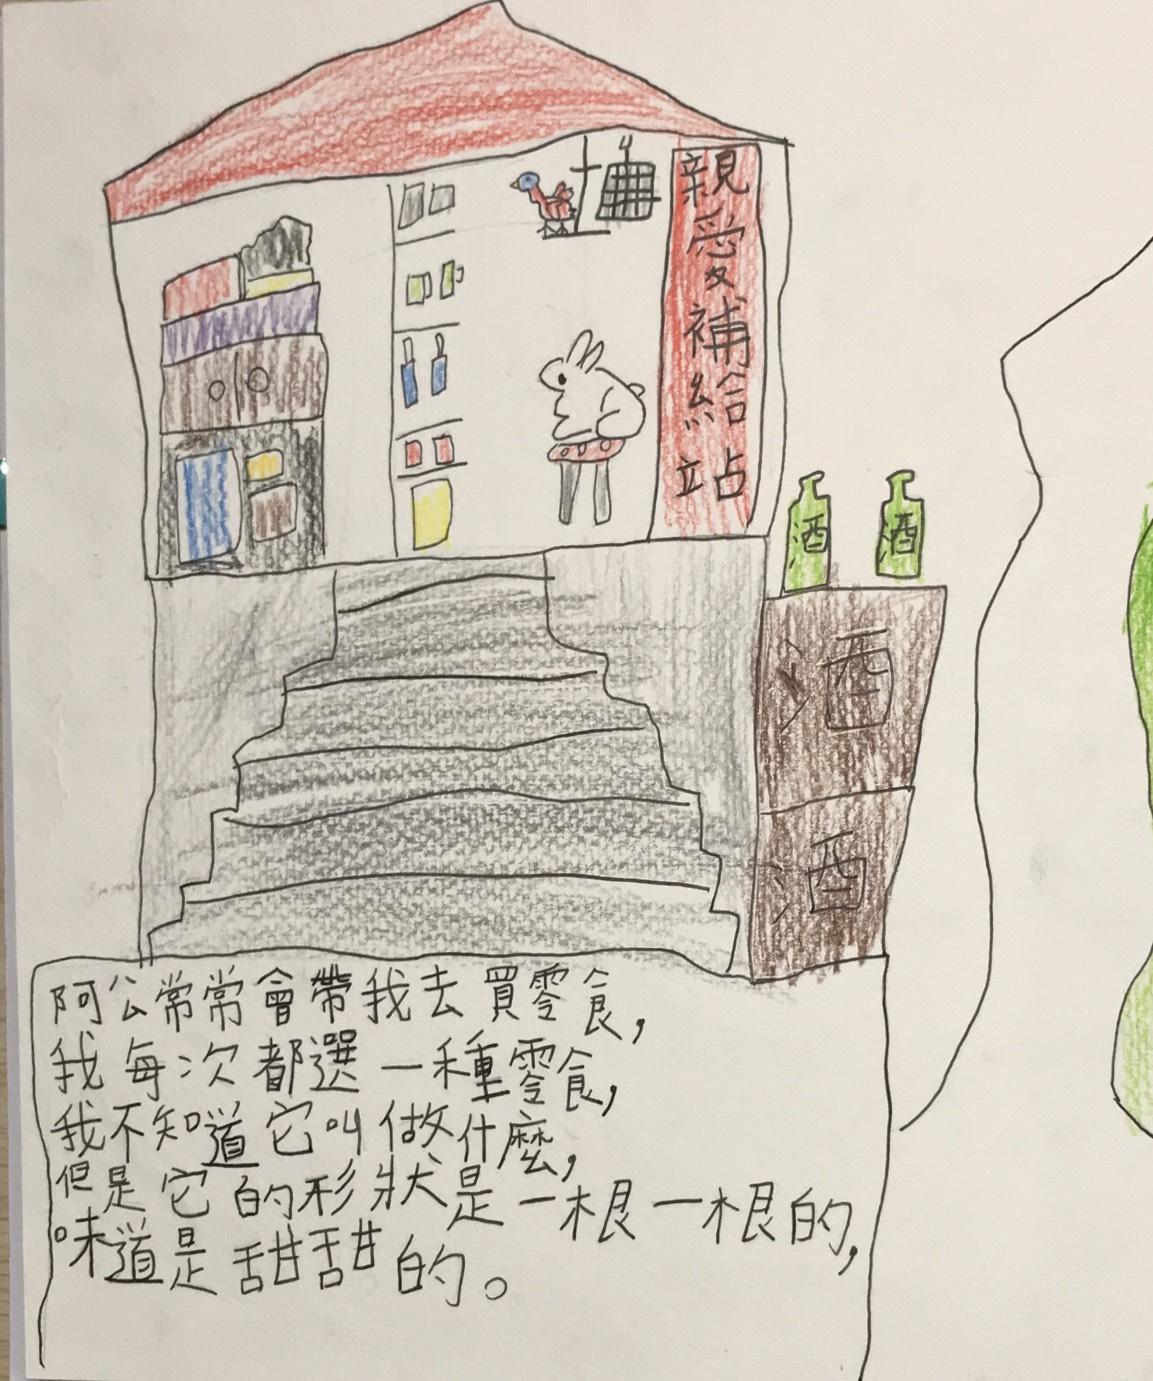 親愛補給站
酒
酒
酒
酒
阿公常常會帶我去買零食,
我每次都選一種零食,
我不知道它叫做什麼,
但是它的形狀是一根一根的,
味道是甜甜的。